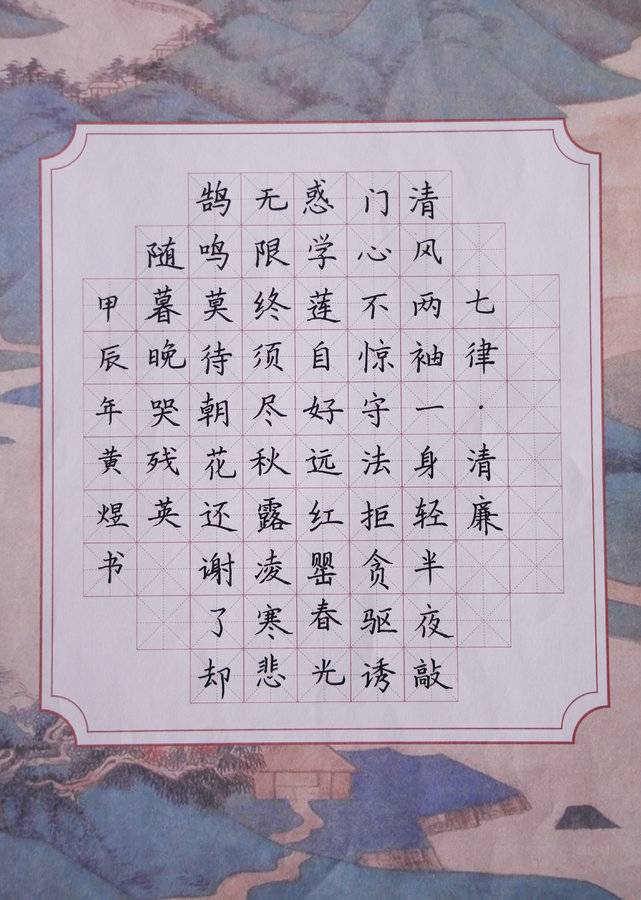 七律·清廉
清风两袖一身轻半夜敲
门心不惊守法拒贪驱诱
惑学莲自好远红罂春光
无限终须尽秋露凌寒悲
鹄鸣莫待朝花还谢了却
随暮晚哭残英
甲辰年黄煜书